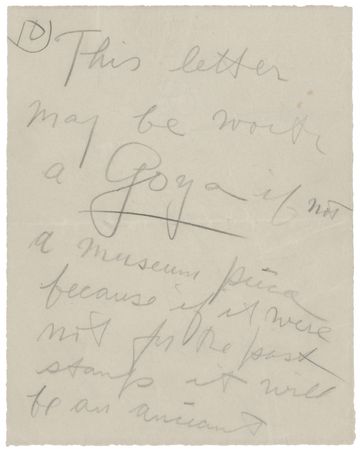 10)
This letter
may be worth
a Goya if not
a museum piece
because if it were
not for the post
stamp it will
be an anciant